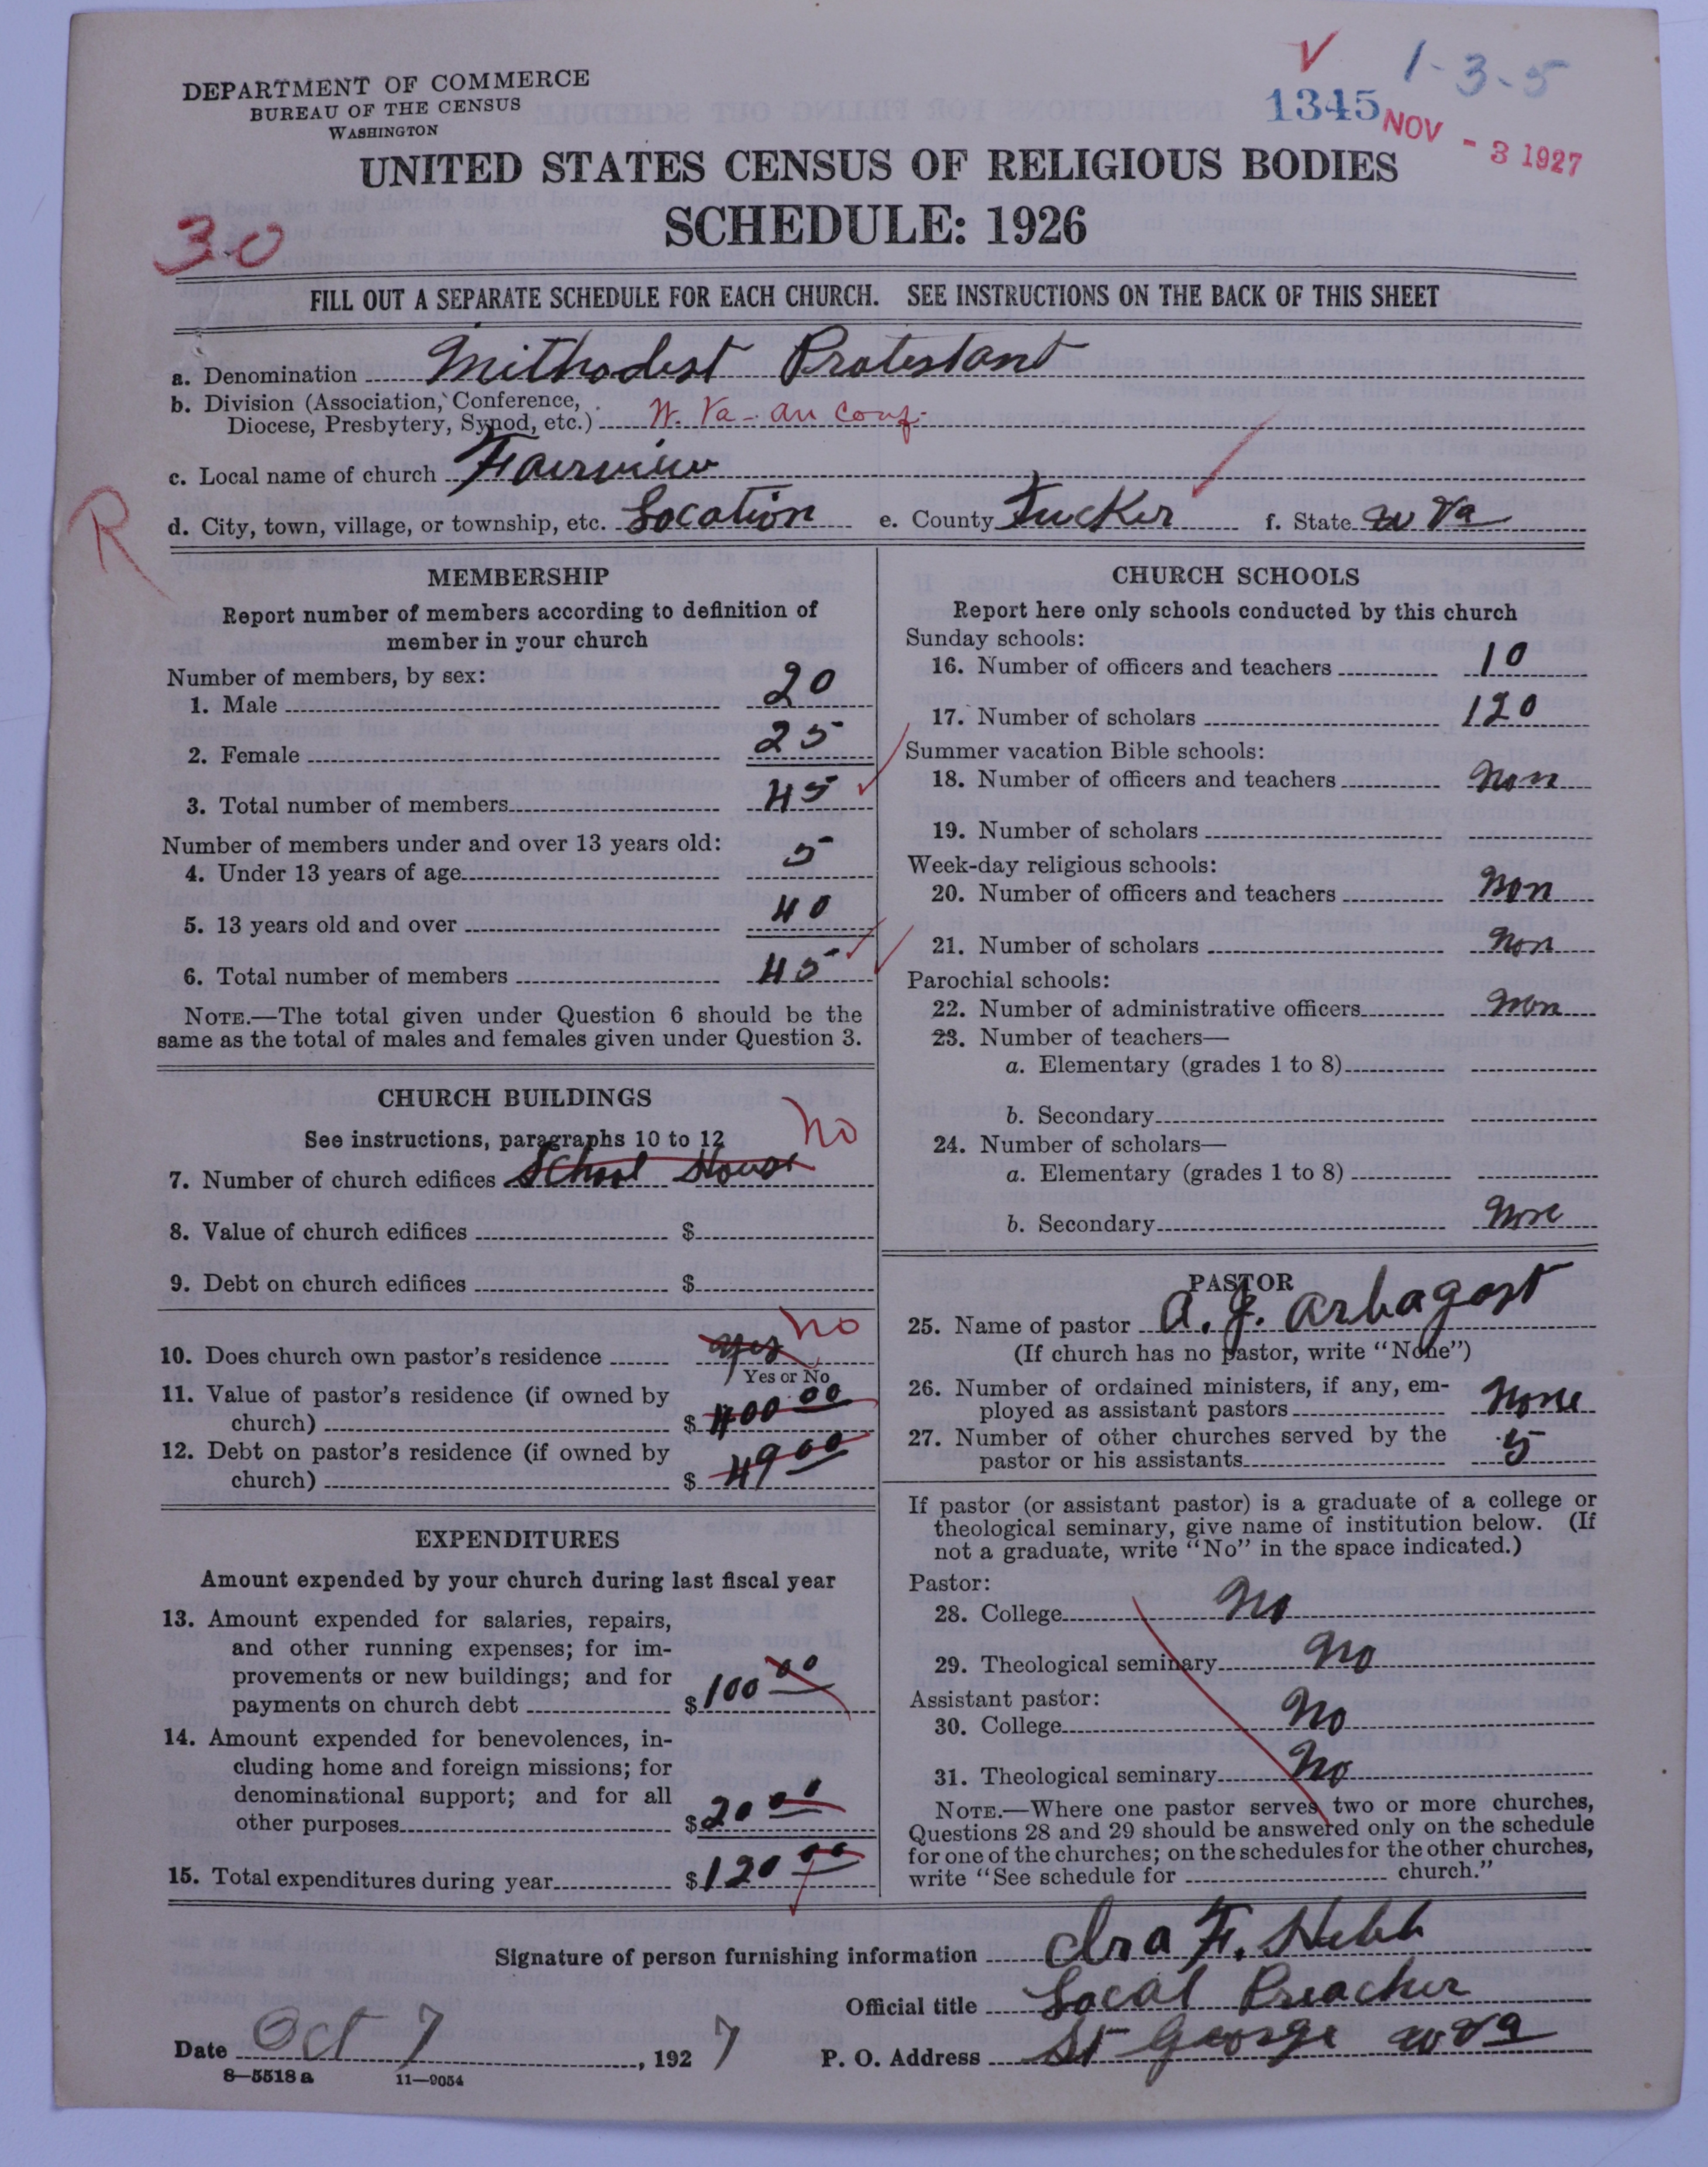 DEPARTMENT OF COMMERCE
BUREAU OF THE CENSUS
WASHINGTON
1345
1-3-5
NOV - 3 1927
UNITED STATES CENSUS OF RELIGIOUS BODIES
SCHEDULE: 1926
30
FILL OUT A SEPARATE SCHEDULE FOR EACH CHURCH. SEE INSTRUCTIONS ON THE BACK OF THIS SHEET
a. Denomination Mithodist Protestant
b. Division (Association, Conference,
Diocese, Presbytery, Synod, etc.) W. Va - an conf.
c. Local name of church Fairview
R
d. City, town, village, or township, etc. Location e. County Tucker f. State W Va
MEMBERSHIP
Report number of members according to definition of
member in your church
Number of members, by sex:
1. Male 20
2. Female 25
3. Total number of members 45
Number of members under and over 13 years old:
4. Under 13 years of age 5
5. 13 years old and over 40
6. Total number of members 45
NOTE.—The total given under Question 6 should be the
same as the total of males and females given under Question 3.
CHURCH BUILDINGS
See instructions, paragraphs 10 to 12 no
7. Number of church edifices School House
8. Value of church edifices $
9. Debt on church edifices $
10. Does church own pastor's residence yes no
Yes or No
11. Value of pastor's residence (if owned by
church) $400.00
12. Debt on pastor's residence (if owned by
church) $4900
EXPENDITURES
Amount expended by your church during last fiscal year
13. Amount expended for salaries, repairs,
and other running expenses; for im-
provements or new buildings; and for
payments on church debt $100 00
14. Amount expended for benevolences, in-
cluding home and foreign missions; for
denominational support; and for all
other purposes $20 00
15. Total expenditures during year $120 00
CHURCH SCHOOLS
Report here only schools conducted by this church
Sunday schools:
16. Number of officers and teachers 10
17. Number of scholars 120
Summer vacation Bible schools:
18. Number of officers and teachers Non
19. Number of scholars
Week-day religious schools:
20. Number of officers and teachers Non
21. Number of scholars Non
Parochial schools:
22. Number of administrative officers Non
23. Number of teachers—
a. Elementary (grades 1 to 8)
b. Secondary
24. Number of scholars—
a. Elementary (grades 1 to 8)
b. Secondary None
PASTOR
25. Name of pastor A. J. Arbagast
(If church has no pastor, write "None")
26. Number of ordained ministers, if any, em-
ployed as assistant pastors None
27. Number of other churches served by the
pastor or his assistants 5
If pastor (or assistant pastor) is a graduate of a college or
theological seminary, give name of institution below. (If
not a graduate, write "No" in the space indicated.)
Pastor:
28. College No
29. Theological seminary No
Assistant pastor:
30. College No
31. Theological seminary No
NOTE.—Where one pastor serves two or more churches,
Questions 28 and 29 should be answered only on the schedule
for one of the churches; on the schedules for the other churches,
write "See schedule for church."
Signature of person furnishing information Ira F. Hebb
Official title Local Preacher
Date Oct 7, 1927 P. O. Address St George W Va
8—5518a 11—9054